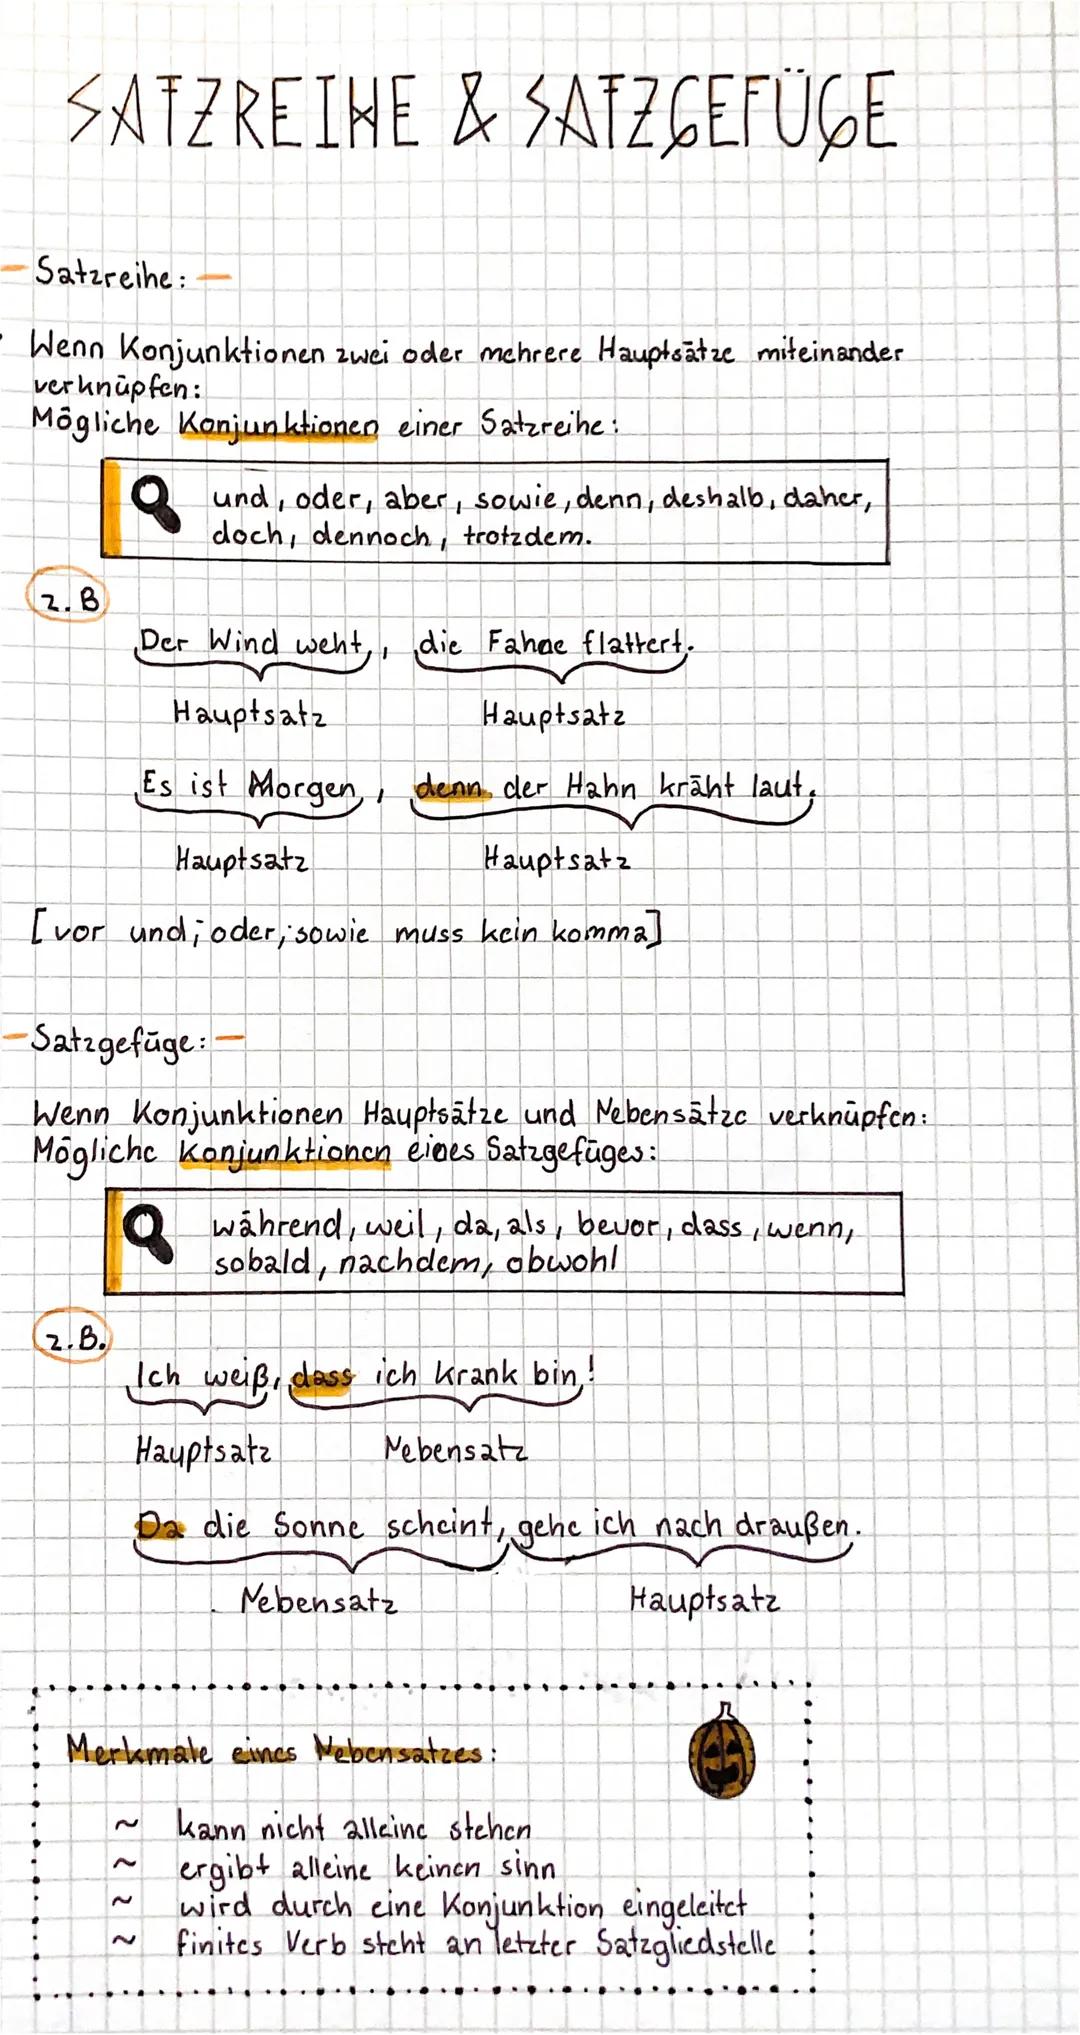 SATZREIHE & SATZGEFÜGE
- Satzreihe: -
Wenn Konjunktionen zwei oder mehrere Hauptsätze miteinander
verknüpfen:
Mögliche Konjunktionen einer Satzreihe:
und, oder, aber, sowie, denn, deshalb, daher,
doch, dennoch, trotzdem.
z.B
Der Wind weht, die Fahne flattert.
Hauptsatz Hauptsatz
Es ist Morgen, denn der Hahn kräht laut.
Hauptsatz Hauptsatz
[vor und; oder; sowie muss kein komma]
- Satzgefüge: -
Wenn Konjunktionen Hauptsätze und Nebensätze verknüpfen:
Mögliche Konjunktionen eines Satzgefüges:
während, weil, da, als, bevor, dass, wenn,
sobald, nachdem, obwohl
z.B.
Ich weiß, dass ich krank bin!
Hauptsatz Nebensatz
Da die Sonne scheint, gehe ich nach draußen.
Nebensatz Hauptsatz
Merkmale eines Nebensatzes:
~ kann nicht alleine stehen
~ ergibt alleine keinen sinn
~ wird durch eine Konjunktion eingeleitet
~ finites Verb steht an letzter Satzgliedstelle